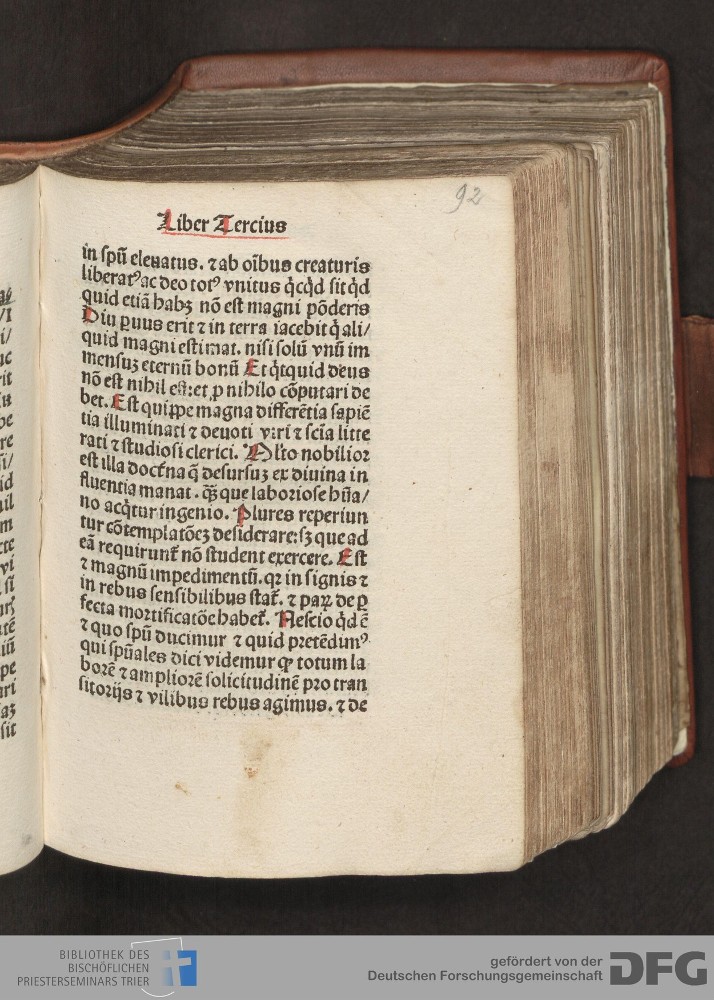 92
Liber Tercius
in spũ eleuatus. ⁊ ab oĩbus creaturis
liberatꝰ ac deo totꝰ vnitus q̇cq̇d sit q̇d
quid etiã habꝫ nõ est magni põderis
Diu ꝑuus erit ⁊ in terra iacebit q̇ ali/
quid magni estimat. nisi solũ vnũ im
mensuꝫ eternũ bonũ Et q̇tquid deus
nõ est nihil est: et ꝓ nihilo cõputari de
bet. Est quippe magna differẽtia sapiẽ
tia illuminati ⁊ deuoti viri ⁊ sciã litte
rati ⁊ studiosi clerici. Alto nobilior
est illa doctrĩa q̃ desursuꝫ ex diuina in
fluentia manat. q̃ꝫ que laboriose hũa/
no acq̇tur ingenio. Plures reperiun
tur cõtemplatõeꝫ desiderare: sꝫ que ad
eã requirunt᷑ nõ student exercere. Est
⁊ magnũ impedimentũ. qꝛ in signis ⁊
in rebus sensibilibus stat᷑. ⁊ paꝝ de ꝑ
fecta mortificatõe habet᷑. Nescio q̇d ẽ
⁊ quo spũ ducimur ⁊ quid pretẽdimꝰ
qui spũales dici videmur ꝙ totum la
borẽ ⁊ ampliorẽ solicitudinẽ pro tran
sitorijs ⁊ vilibus rebus agimus. ⁊ de
BIBLIOTHEK DES
BISCHÖFLICHEN
PRIESTERSEMINARS TRIER
gefördert von der
Deutschen Forschungsgemeinschaft
DFG